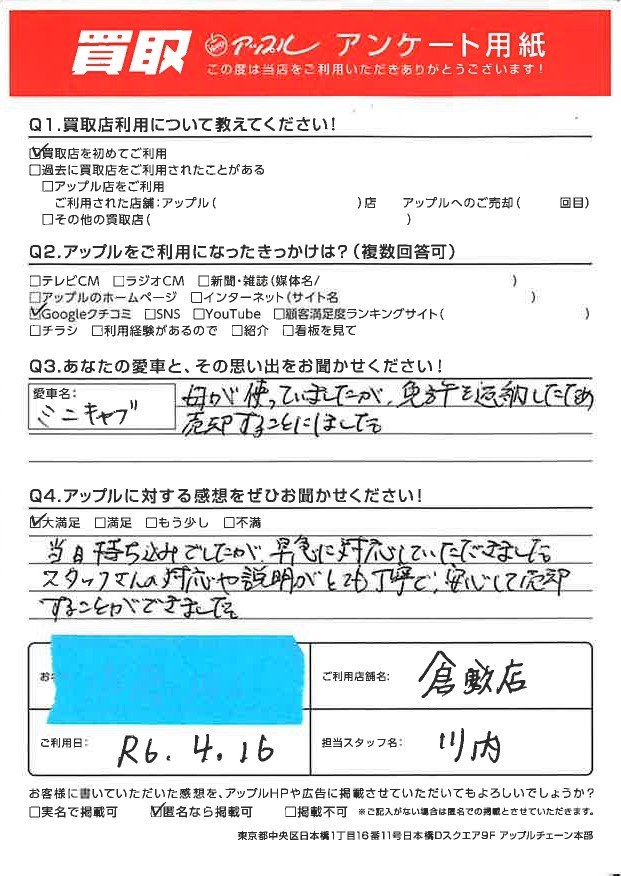 買取 アップル アンケート用紙
この度は当店をご利用いただきありがとうございます!
Q1.買取店利用について教えてください!
☑買取店を初めてご利用
□過去に買取店をご利用されたことがある
□アップル店をご利用
ご利用された店舗:アップル( )店 アップルへのご売却( 回目)
□その他の買取店( )
Q2.アップルをご利用になったきっかけは?(複数回答可)
□テレビCM □ラジオCM □新聞・雑誌(媒体名/ )
□アップルのホームページ □インターネット(サイト名 )
☑Googleクチコミ □SNS □YouTube □顧客満足度ランキングサイト( )
□チラシ □利用経験があるので □紹介 □看板を見て
Q3.あなたの愛車と、その思い出をお聞かせください!
愛車名:
ミニキャブ
母が使っていましたが、免許を返納したため
売却することにしました。
Q4.アップルに対する感想をぜひお聞かせください!
☑大満足 □満足 □もう少し □不満
当日持ち込みでしたが、早急に対応していただきました。
スタッフさんの対応や説明がとても丁寧で、安心して売却
することができました。
お
ご利用店舗名: 倉敷店
ご利用日: R6.4.16
担当スタッフ名: 川内
お客様に書いていただいた感想を、アップルHPや広告に掲載させていただいてもよろしいでしょうか?
□実名で掲載可 ☑匿名なら掲載可 □掲載不可 ※ご記入がない場合は匿名での掲載とさせていただきます。
東京都中央区日本橋1丁目16番11号日本橋Dスクエア9F アップルチェーン本部